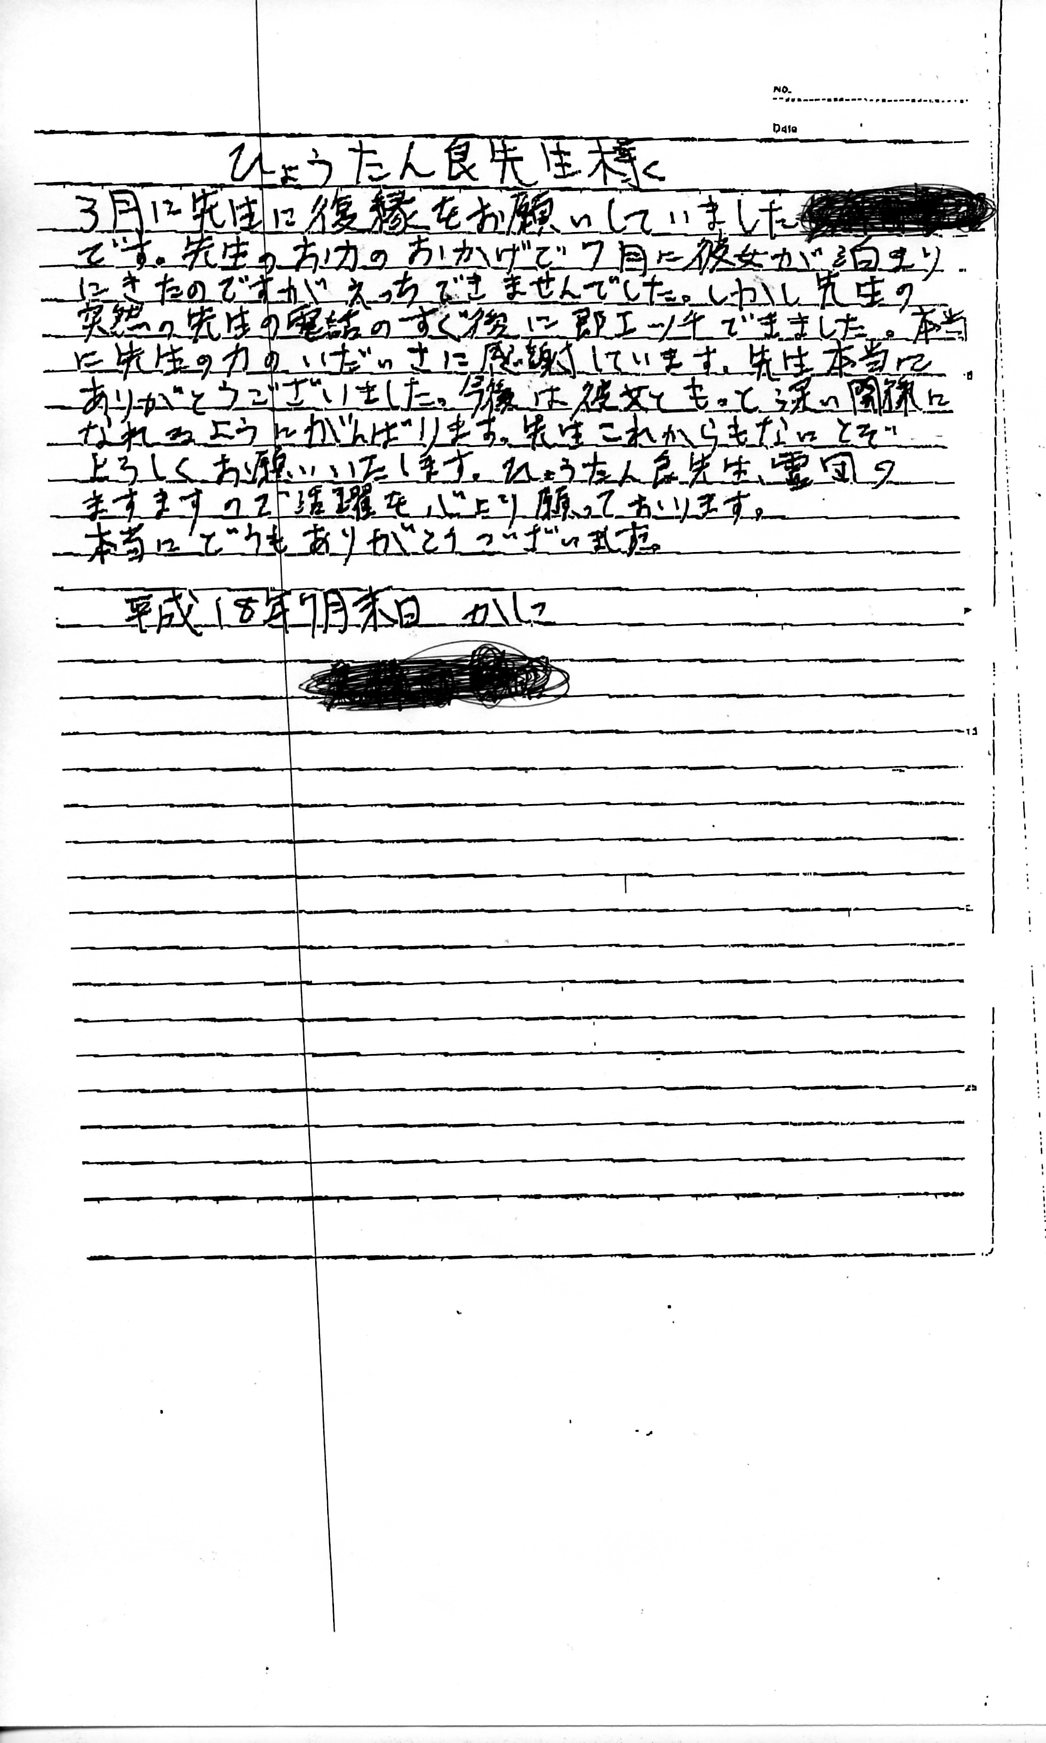 NO.
Date
ひょうたん良先生様へ
3月に先生に復縁をお願いしていました
です。先生のお力のおかげで7月に彼女が泊まり
にきたのですがえっちできませんでした。しかし先生の
突然の先生の電話のすぐ後に即エッチできました。本当
に先生の力のいだいさに感謝しています。先生本当に
ありがとうございました。今後は彼女ともっと深い関係に
なれるようにがんばります。先生これからもなにとぞ
よろしくお願いいたします。ひょうたん良先生、霊団の
ますますのご活躍を心より願っております。
本当にどうもありがとうございます。
平成18年7月末日 かしこ